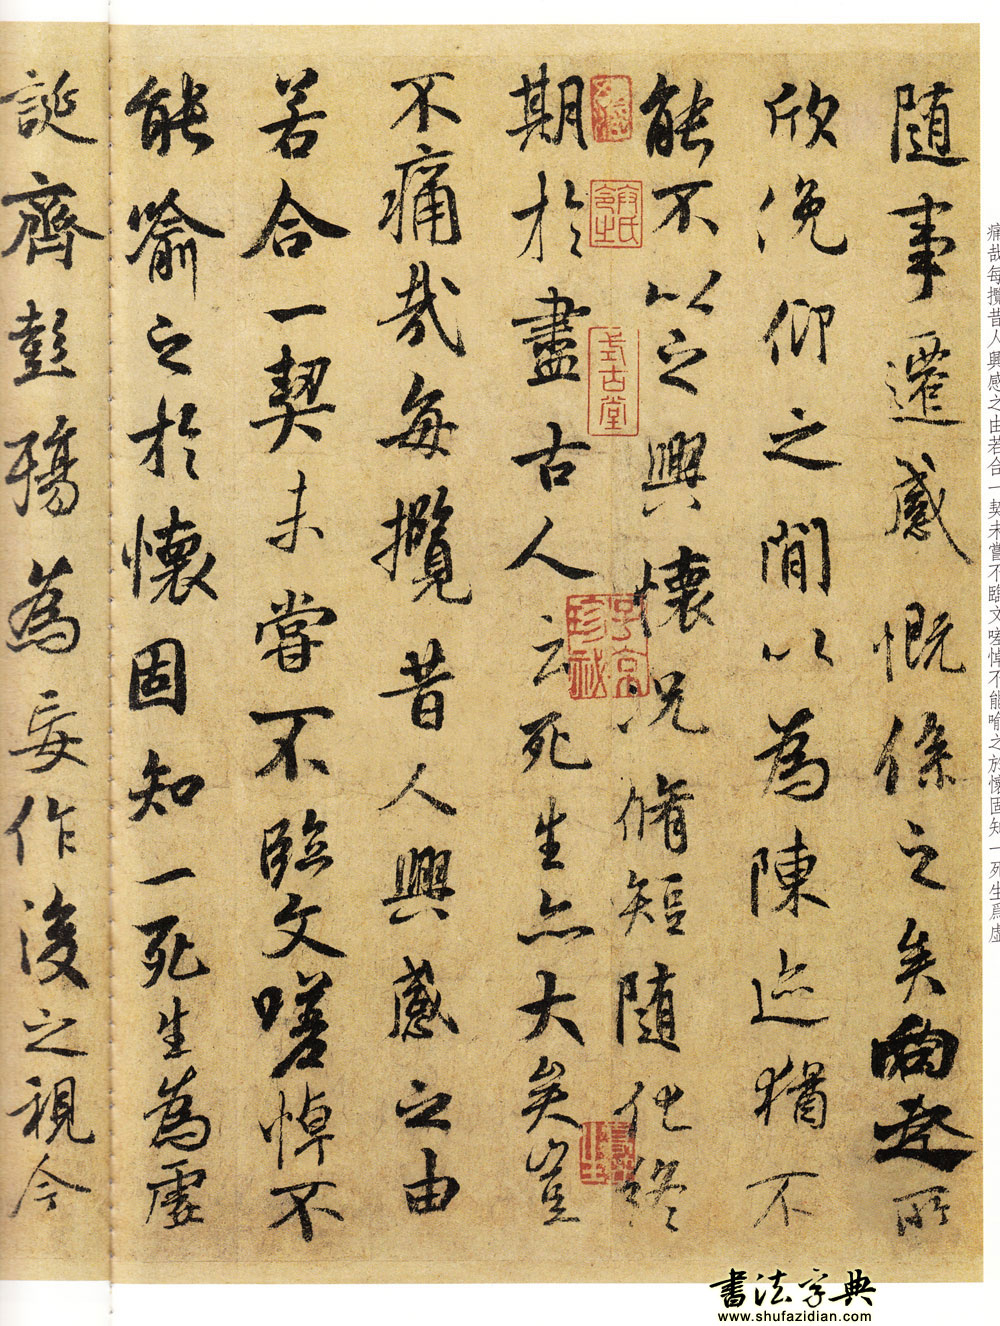 痛哉每攬昔人興感之由若合一契未嘗不臨文嗟悼不能喻之於懷固知一死生爲虛
隨事遷感慨係之矣向之所
欣俛仰之閒以為陳迹猶不
能不以之興懷況脩短隨化終
期於盡古人云死生亦大矣豈
不痛哉每攬昔人興感之由
若合一契未嘗不臨文嗟悼不
能喻之於懷固知一死生為虛
誕齊彭殤為妄作後之視今
式古堂
子京珍祕
書法字典
www.shufazidian.com